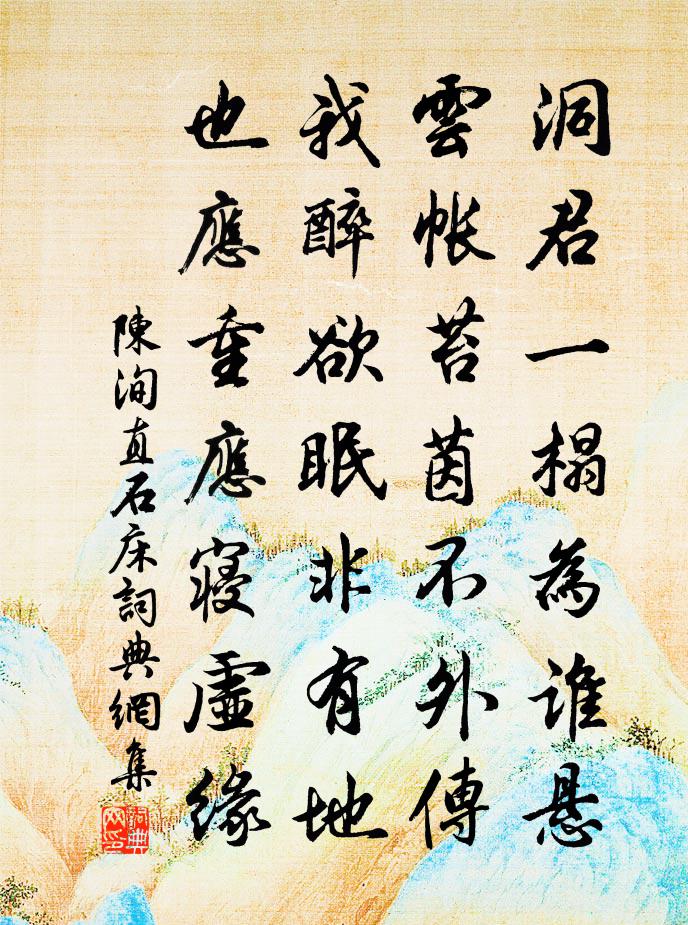 洞君一榻為誰懸
雲帐苔茵不外傳
我醉欲眠非有地
也應重應寝虛緣
陳洵直石床詞典網集
詞典網印